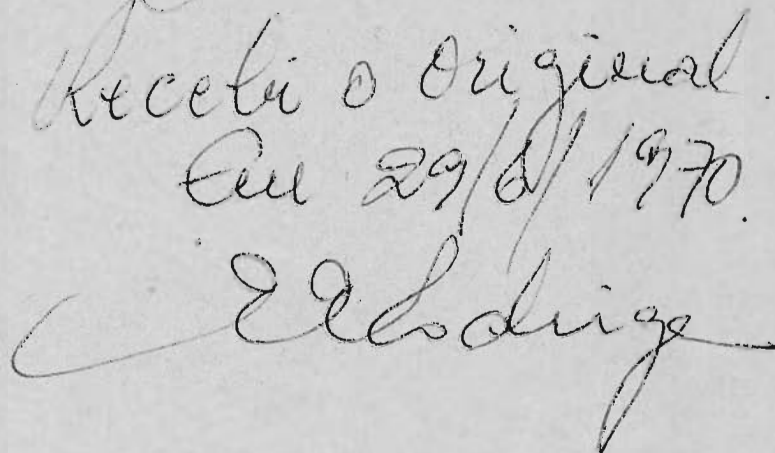 Recebi o original.
Em 29/6/1970.